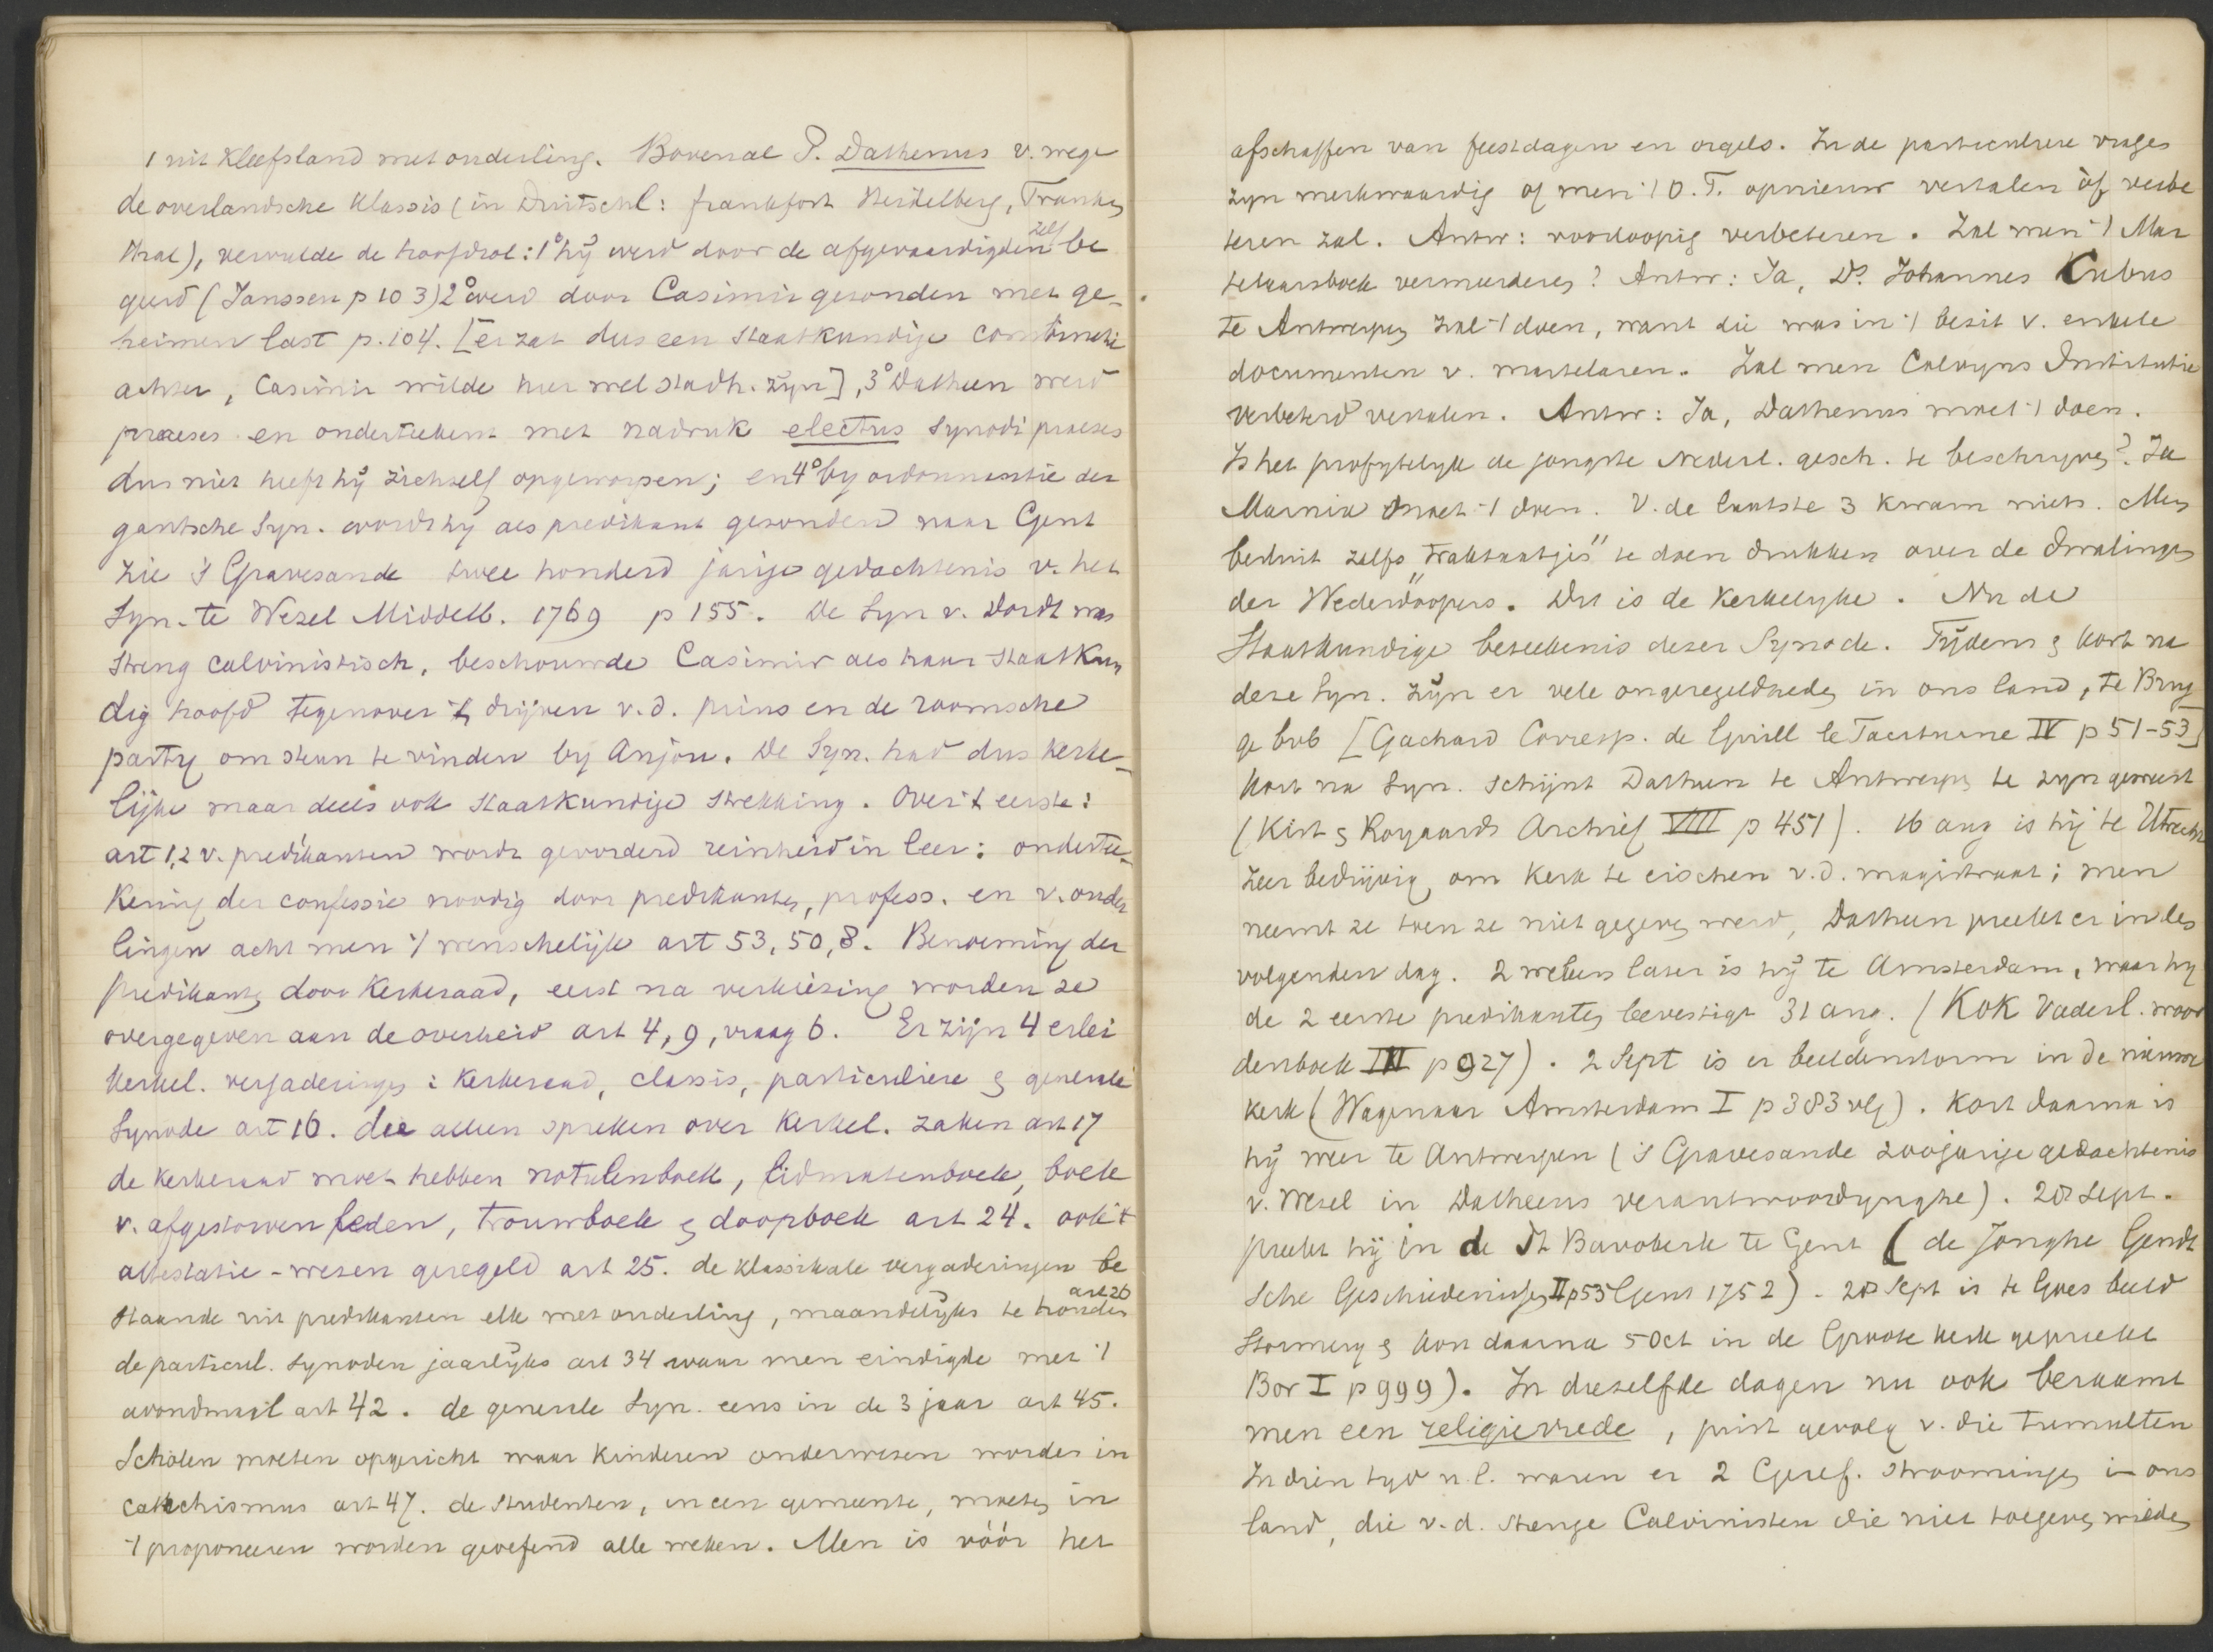 1 uit Kleefsland met ouderling. Bovenal P. Dathenus v. wege
de overlandsche Klassis (in Duitschl: frankfort Heidelberg, Franken
thal), vervulde de hoofdrol: 1° hij werd door de afgevaardigden zelf be
geerd (Janssen p 103) 2° werd door Casimir gezonden met ge-
heimen last p. 104. [er zat dus een staatkundige combinatie
achter, Casimir wilde hier wel stadh. zijn], 3° Datheen werd
praeses en onderteekent met nadruk electus Synodi praeses
dus niet heeft hij zichzelf opgeworpen; en 4° by ordonnantie der
gantsche Syn. wordt hij als predikant gezonden naar Gent
zie 's Gravesande twee honderd jarige gedachtenis v. het
Syn. te Wezel Middelb. 1769 p 155. De Syn v. Dordt was
streng calvinistisch, beschouwde Casimir als haar staatkun
dig hoofd tegenover 't drijven v.d. prins en de roomsche
party om steun te vinden by Anjou. De Syn. had dus kerke-
lijke maar deels ook staatkundige strekking. Over 't eerste:
art 1,2 v. predikanten wordt gevorderd reinheid in leer: ondertee-
kening der confessie noodig door predikanten, profess. en v. ouder
lingen acht men 't wenschelijk art 53, 50, 8. Benoeming der
predikanten door Kerkeraad, eerst na verkiezing worden ze
overgegeven aan de overheid art 4, 9, vraag 6. Er zijn 4 erlei
Kerkel. vergaderingen: Kerkeraad, classis, particuliere & generale
Synode art 16. die alleen spreken over Kerkel. zaken art 17
de Kerkeraad moet hebben notulenboek, lidmatenboek, boek
v. afgestorven leden, trouwboek & doopboek art 24. ook 't
attestatie-wezen geregeld art 25. de klassikale vergaderingen be
staande uit predikanten elk met ouderling, maandelijks te houden art 26
de particul. synoden jaarlijks art 34 waar men eindigde met 't
avondmaal art 42. de generale Syn. eens in de 3 jaar art 45.
Scholen moeten opgericht waar kinderen onderwezen worden in
catechismus art 47. de studenten, in een gemeente, moeten in
't proponeeren worden geoefend alle weken. Men is vóór het
afschaffen van feestdagen en orgels. In de particuliere vragen
zyn merkwaardig of men 't O.T. opnieuw vertalen òf verbe
teren zal. Antw: voorloopig verbeteren. Zal men 't Mar
telaarsboek vermeerderen? Antw: Ja, Ds. Johannes Cubus
te Antwerpen zal 't doen, want die was in 't bezit v. enkele
documenten v. martelaren. Zal men Calvyns Institutie
verbeterd vertalen. Antw: Ja, Dathenus moet 't doen.
Is het profytelyk de jongste Nederl. gesch. te beschryven? Ja
Marnix moet 't doen. V. de laatste 3 kwam niets. Men
besluit zelfs "traktaatjes" te doen drukken over de dwalingen
der Wederdoopers. Dit is de Kerkelyke. Nu de
Staatkundige beteekenis dezer Synode. Tijdens & kort na
deze Syn. zijn er vele ongeregeldheden in ons land, te Brug
ge bvb [Gachard Corresp. de Guill le Taciturne IV p 51-53]
Kort na Syn. schijnt Datheen te Antwerpen te zyn geweest
(Kist & Royaards Archief VIII p 451). 16 aug is hij te Utrecht
zeer bedrijvig om Kerk te eischen v.d. magistraat; men
neemt ze toen ze niet gegeven werd, Datheen preekt er in des
volgenden dag. 2 weken later is hij te Amsterdam, waar hy
de 2 eerste predikanten bevestigt 31 aug. (Kok Vaderl. woor
denboek III p 927). 2 Sept is er beeldenstorm in de nieuwe
kerk (Wagenaar Amsterdam I p 383 vlg). Kort daarna is
hij weer te Antwerpen ('s Gravesande 200jarige gedachtenis
v. Wesel in Datheens verantwoordynghe). 20 Sept.
preekt hij in de St Bavokerk te Gent (de Jonghe Gendt
sche Geschiedenissen II p 53 Gent 1752). 20 Sept is te Goes beeld
stormery & kon daarna 5 Oct in de Groote kerk gepreekt
Bor I p 999). In diezelfde dagen nu ook beraamt
men een religievrede, juist gevolg v. die tumulten
In dien tyd n.l. waren er 2 Geref. stroomingen in ons
land, die v.d. strenge Calvinisten die niet toegeven wilden